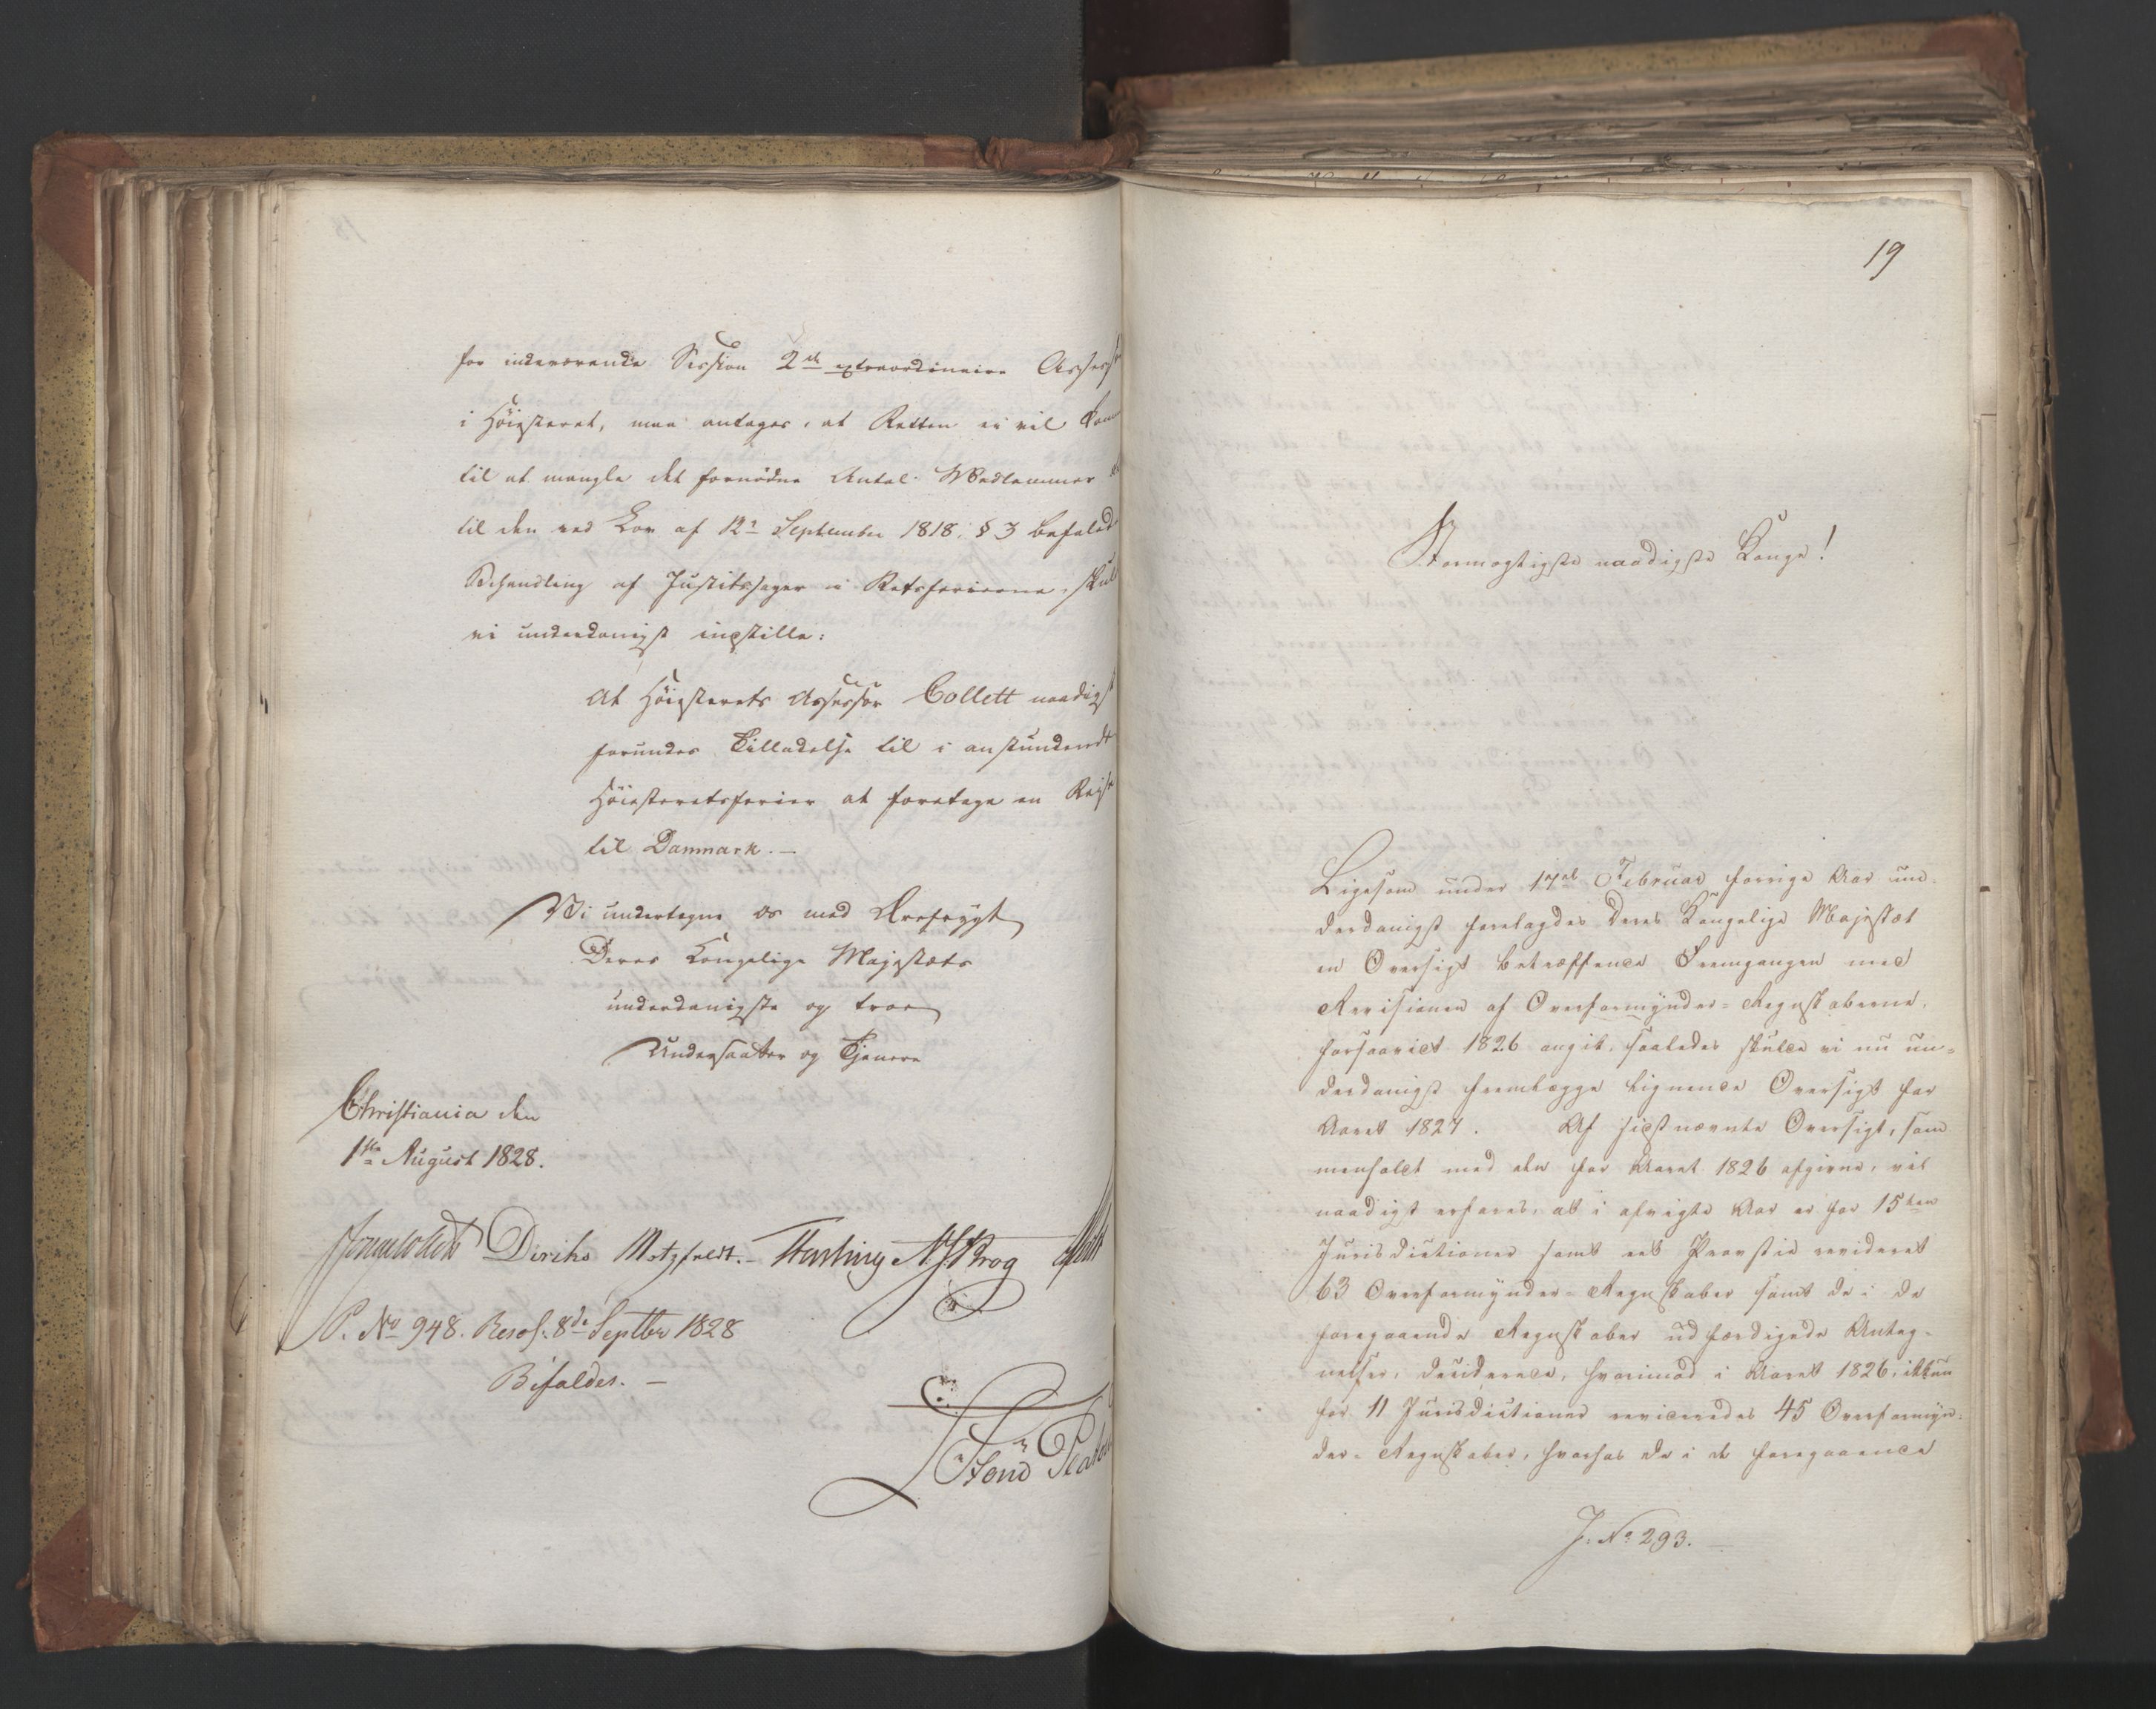 for indeværende Session 2den extraordinaire Assessor
i Höiesteret, maa antages, at Retten ei vil komme
til at mangle det fornødne Antal Medlemmer
til den ved Lov af 12te September 1818, § 3 befalede
Behandling af Justitssager i Retsferierne, skulle
vi underdanigst indstille:
At Höiesterets Assessor Collett naadigst
forundes Tilladelse til i anstundende
Höiesteretsferier at foretage en Reise
til Danmark. —
Vi undertegne os med Ærefrygt
Deres Kongelige Majestæts
underdanigste og troe
Undersaatter og Tjenere
Christiania den
1ste August 1828.
Diriks Motzfeldt. — N. J. Krog
P. No 948. Resol: 8de Septbr 1828
Bifaldes. —
19
Stormægtigste naadigste Konge!
Ligesom under 17de Februar forrige Aar un-
derdanigst forelagdes Deres Kongelige Majestæt
en Oversigt betræffende Fremgangen med
Revisionen af Overformynder-Regnskaberne,
forsaavidt 1826 angik, saaledes skulle vi nu un-
derdanigst fremlægge lignende Oversigt for
Aaret 1827. Af sidstnævnte Oversigt, sam
menholdt med den for Aaret 1826 afgivne, vil
naadigst erfares, at i afvigte Aar er for 15ten
Jurisdictioner samt eet Provstie revideret
63 Overformynder-Regnskaber samt de i de
foregaaende Regnskaber udfærdigede Anteg-
nelser, deciderede, hvorimod i Aaret 1826, ikkun
for 11 Jurisdictioner revideredes 45 Overformyn-
der-Regnskaber, hvorhos de i de foregaaende
J. No 293. —